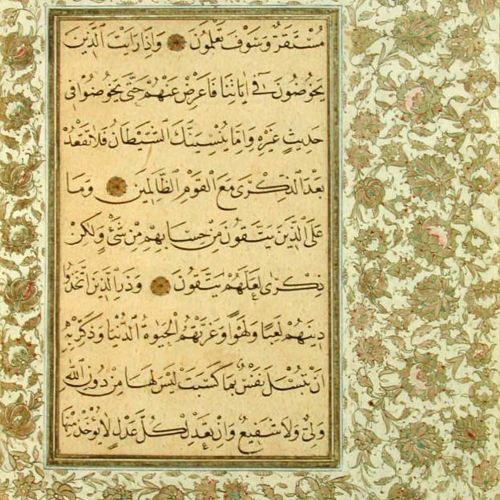 مُسْتَقَرٌّ وَسَوْفَ تَعْلَمُونَ وَإِذَا رَأَيْتَ الَّذِينَ
يَخُوضُونَ فِي آيَاتِنَا فَأَعْرِضْ عَنْهُمْ حَتَّى يَخُوضُوا فِي
حَدِيثٍ غَيْرِهِ وَإِمَّا يُنْسِيَنَّكَ الشَّيْطَانُ فَلَا تَقْعُدْ
بَعْدَ الذِّكْرَى مَعَ الْقَوْمِ الظَّالِمِينَ وَمَا
عَلَى الَّذِينَ يَتَّقُونَ مِنْ حِسَابِهِمْ مِنْ شَيْءٍ وَلَكِنْ
ذِكْرَى لَعَلَّهُمْ يَتَّقُونَ وَذَرِ الَّذِينَ اتَّخَذُوا
دِينَهُمْ لَعِبًا وَلَهْوًا وَغَرَّتْهُمُ الْحَيَوةُ الدُّنْيَا وَذَكِّرْ بِهِ
أَنْ تُبْسَلَ نَفْسٌ بِمَا كَسَبَتْ لَيْسَ لَهَا مِنْ دُونِ اللَّهِ
وَلِيٌّ وَلَا شَفِيعٌ وَإِنْ تَعْدِلْ كُلَّ عَدْلٍ لَا يُؤْخَذْ مِنْهَا